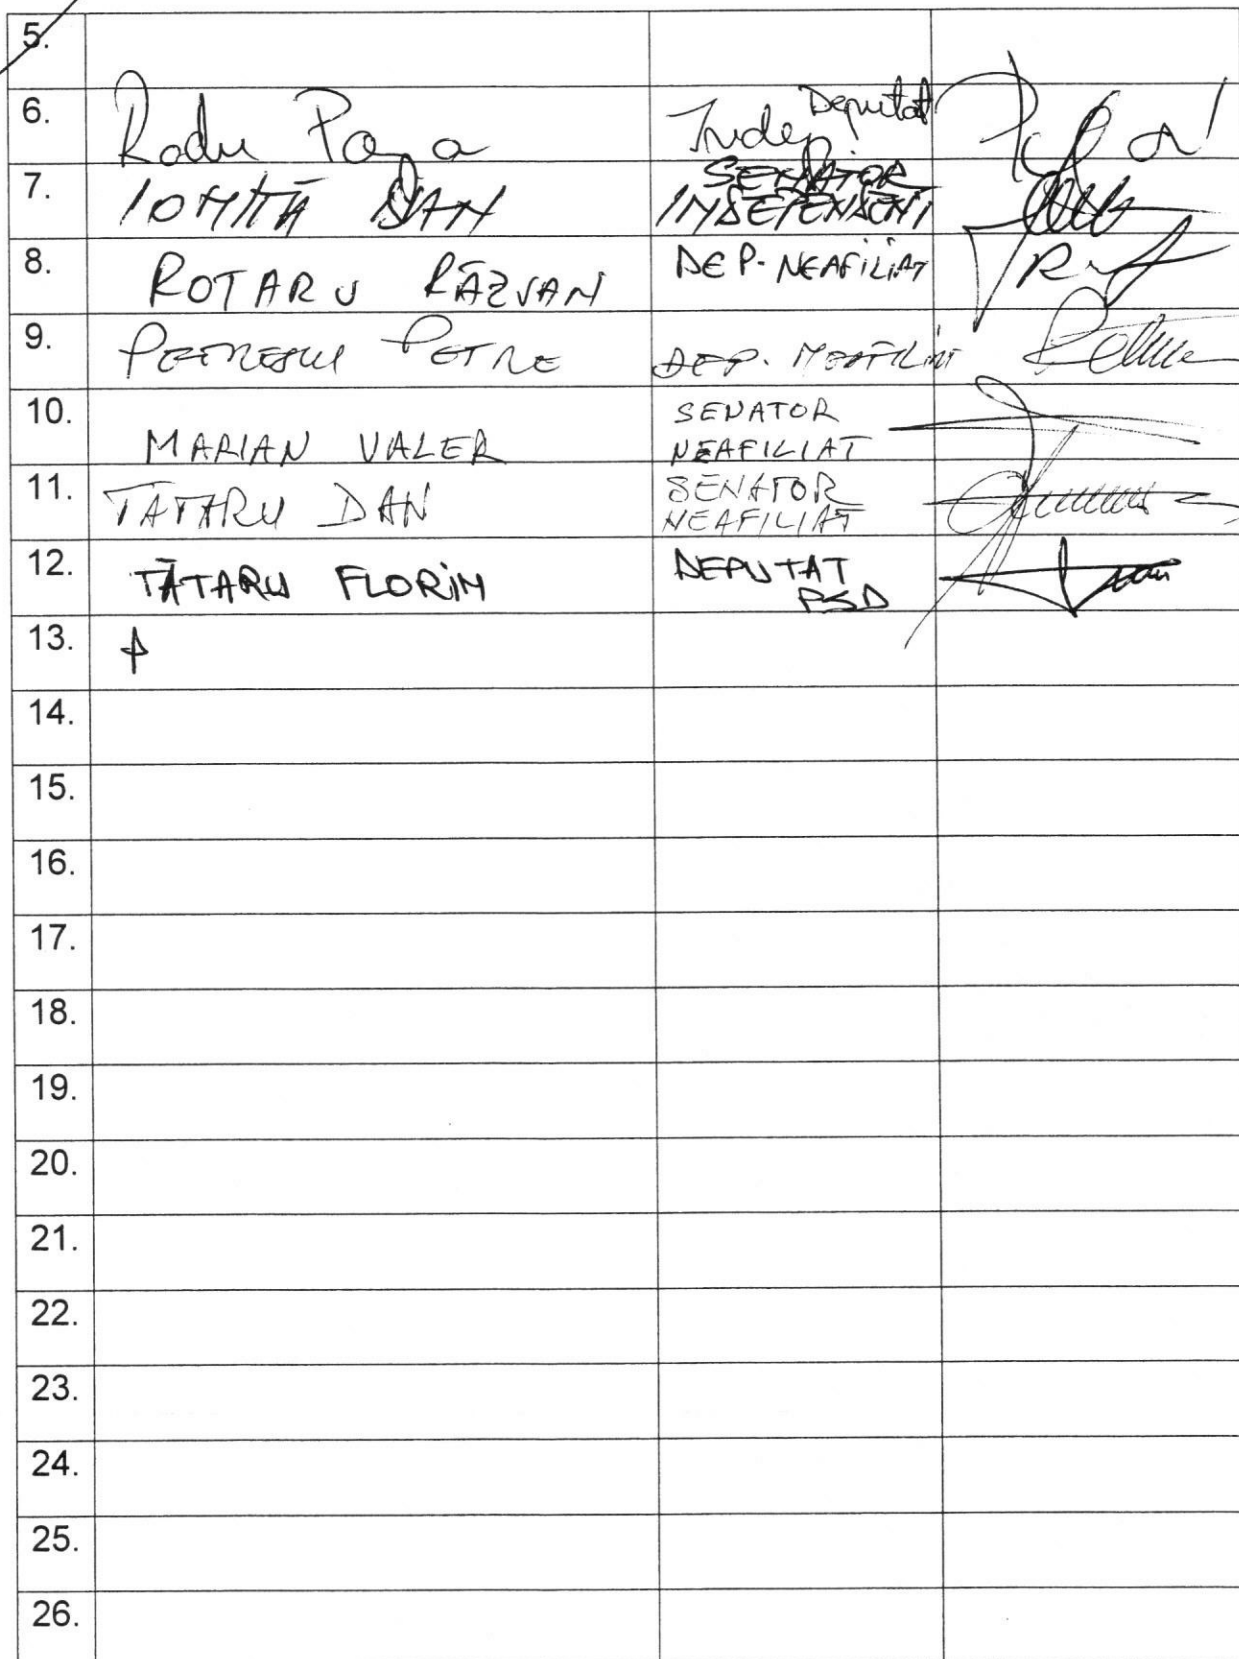 5.
6. Radu Popa Indep Deputat
7. IONIȚĂ DAN SENATOR
INDEPENDENT
8. ROTARU RĂZVAN DEP. NEAFILIAT
9. PETRESCU PETRE DEP. NEAFILIAT
10. MARIAN VALER SENATOR
NEAFILIAT
11. TATARU DAN SENATOR
NEAFILIAT
12. TĂTARU FLORIN DEPUTAT
PSD
13.
14.
15.
16.
17.
18.
19.
20.
21.
22.
23.
24.
25.
26.